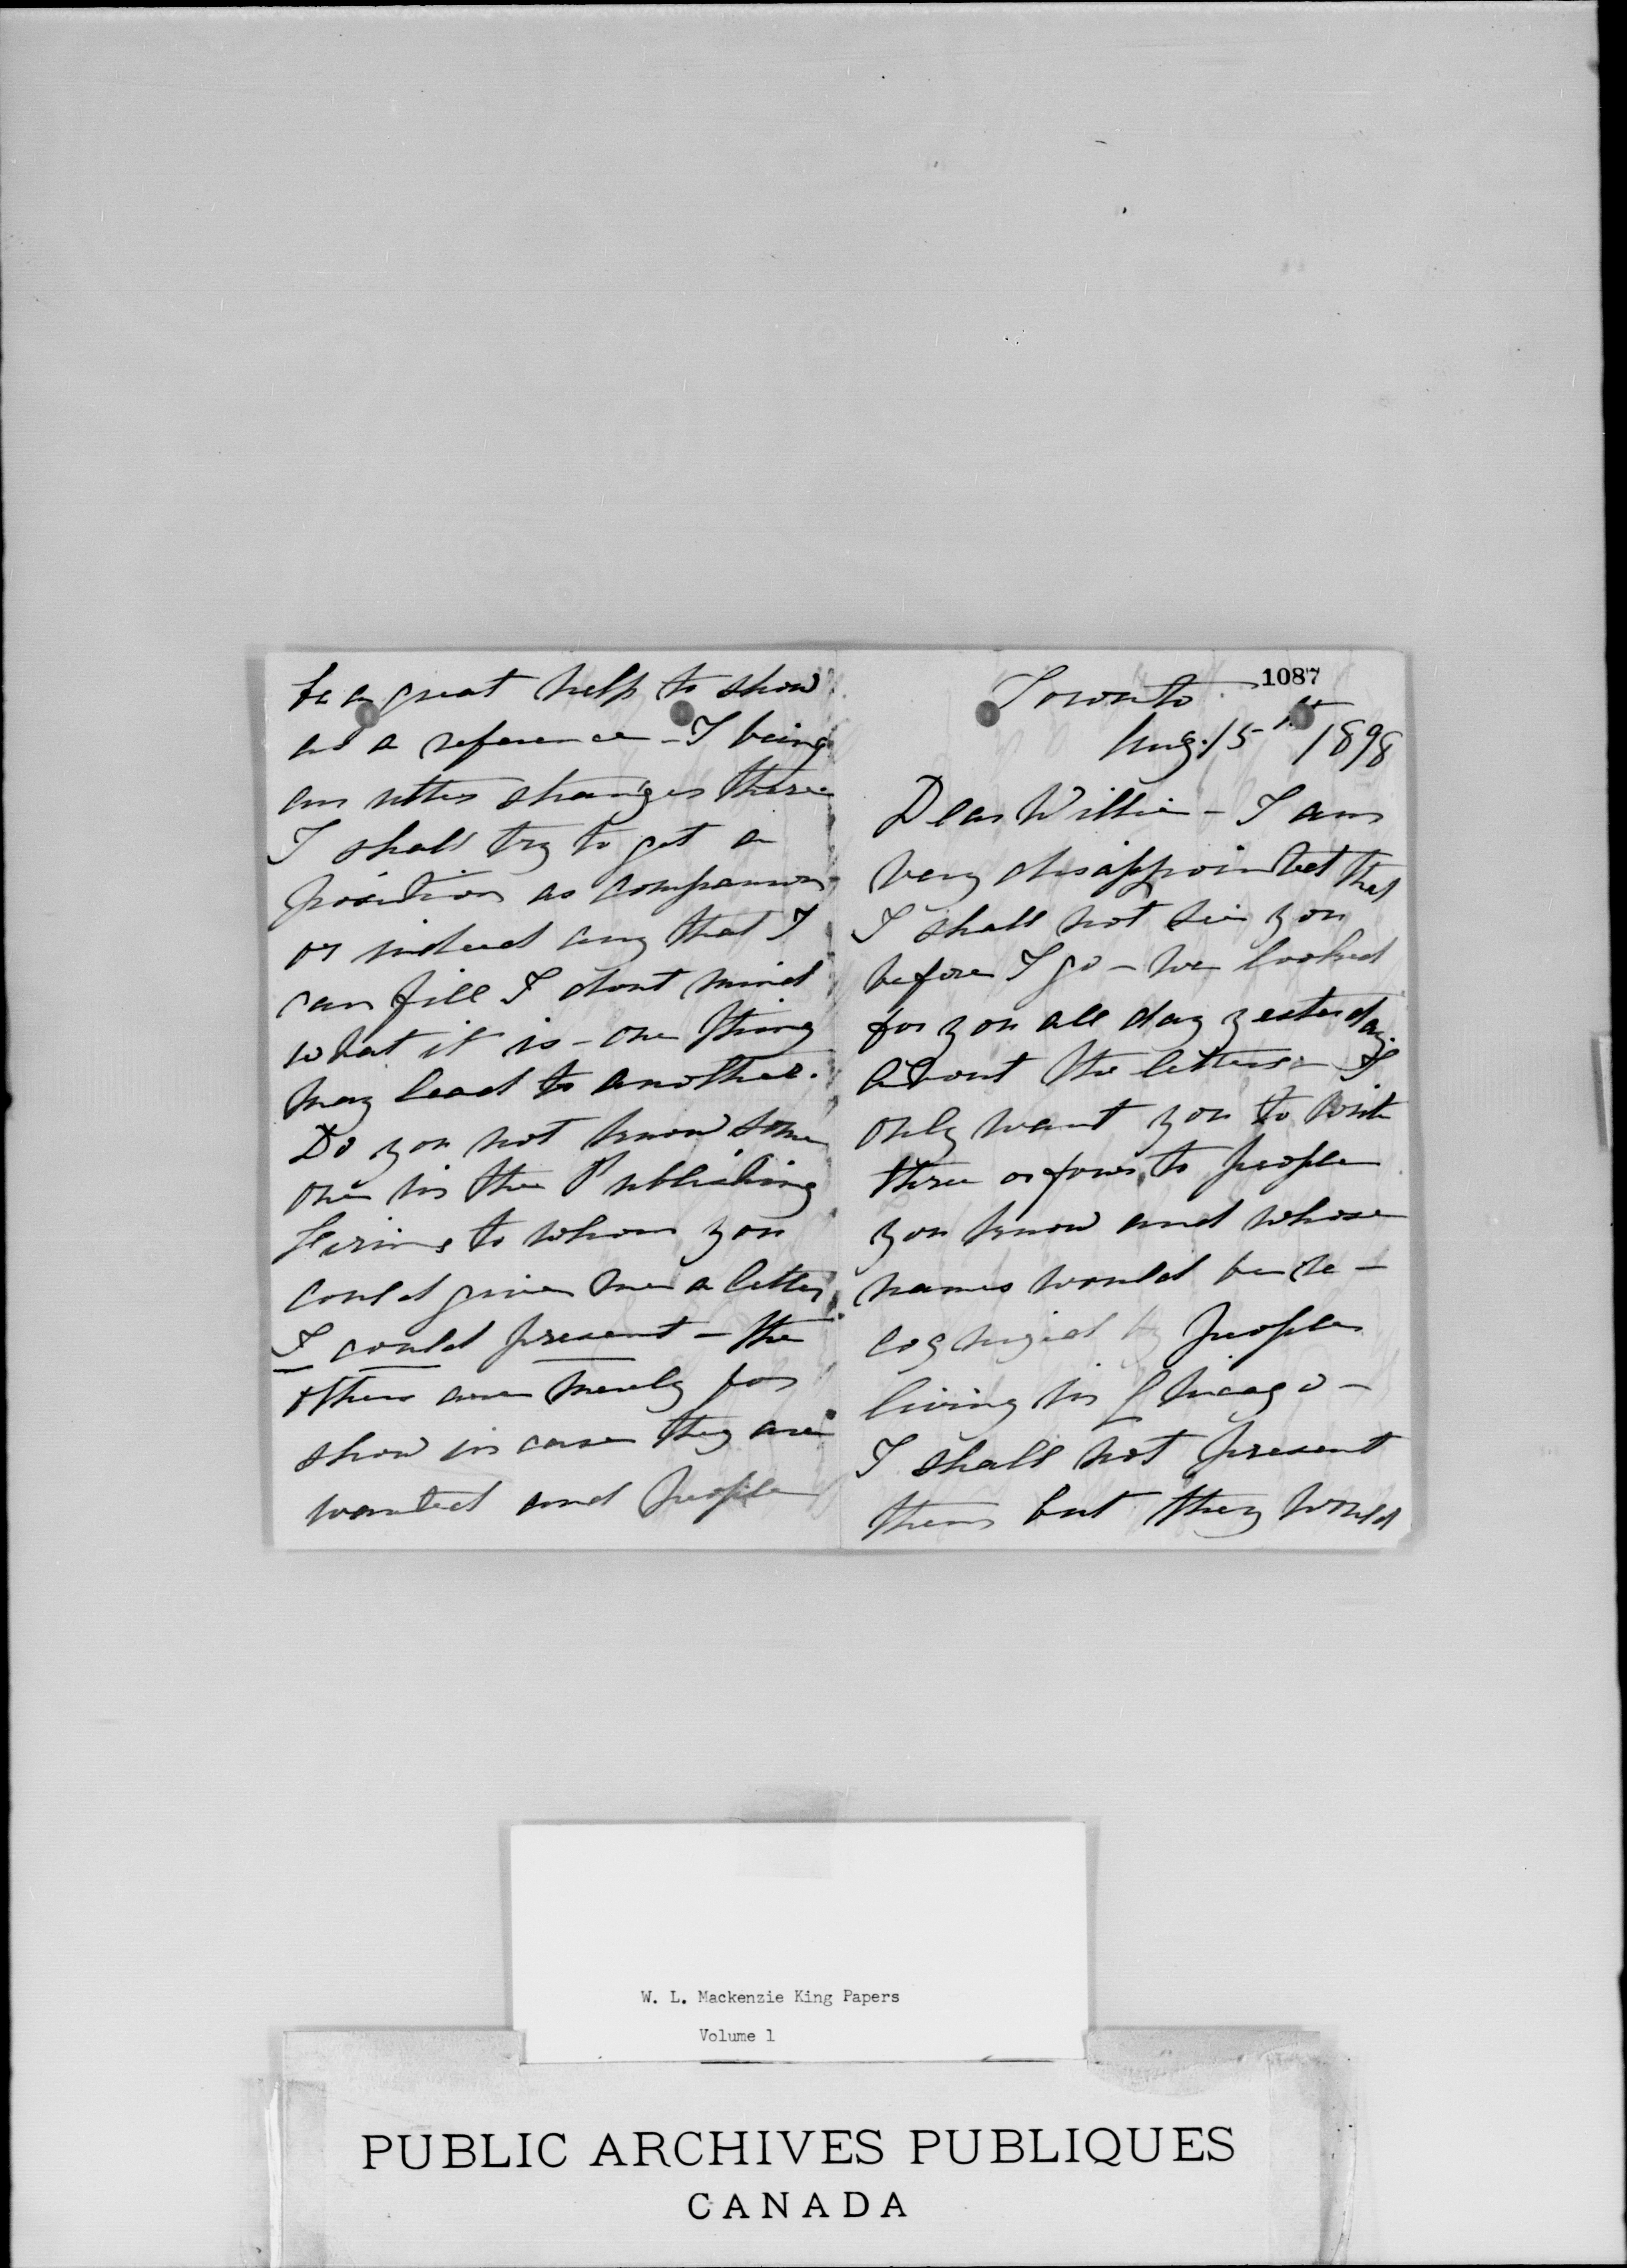 1087
Toronto
Aug. 15th 1898
Dear Willie - I am
very disappointed that
I shall not see you
before I go - we looked
for you all day yesterday.
About the letters - I
only want you to write
three or four, to people
you know and whose
names would be re-
cognized by people
living in Chicago -
I shall not present
them but they would
be a great help to show
as a reference - I being
an utter stranger there
I shall try to get a
position as companion
or indeed any that I
can fill I dont mind
what it is - one thing
may lead to another.
Do you not know some
one in the Publishing
Firms to whom you
could give me a letter
I could present - the
others are merely for
show in case they are
wanted and people
W. L. Mackenzie King Papers
Volume 1
PUBLIC ARCHIVES PUBLIQUES
CANADA